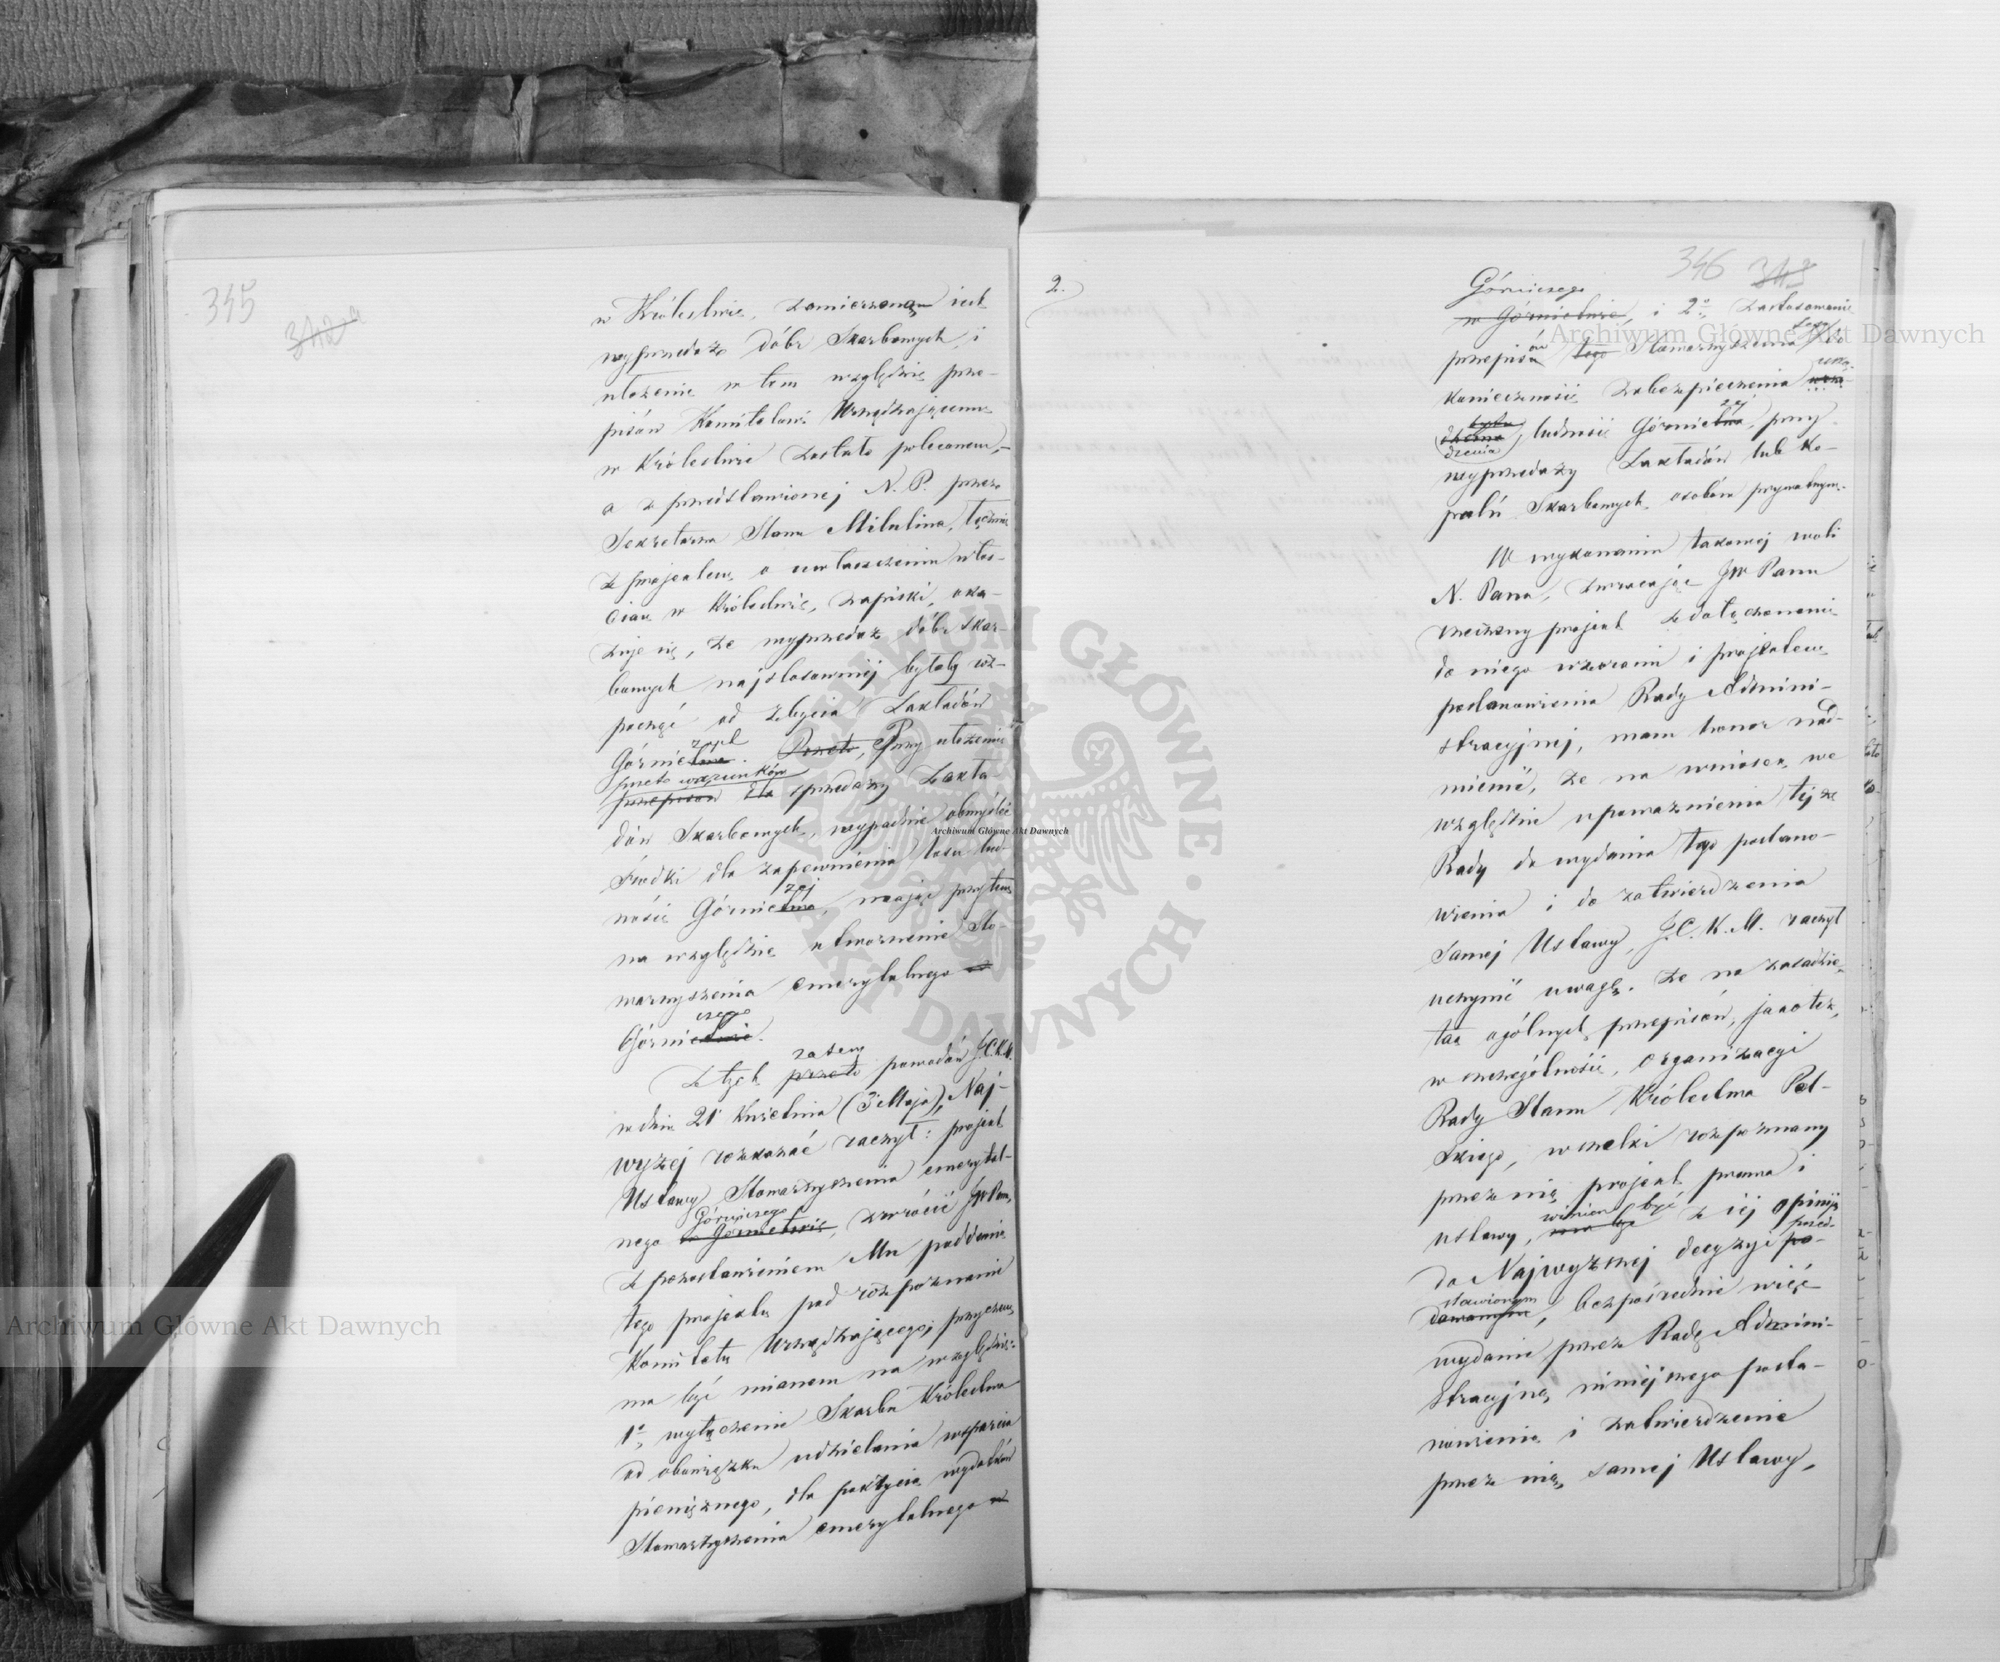 345
342a
w Królestwie, zamierzoną jest
wyprzedaż dóbr Skarbowych, i
ułożenie w tem względzie prze-
pisów Komitetowi Urządzającemu
w Królestwie zostało poleconem,
a z przedstawionej N. P. przez
Sekretarza Stanu Milutina, łącznie
z projektem o uwłaszczeniu włoś-
cian w Królestwie, zapiski, oka-
zuje się, że wyprzedaż dóbr Skar-
bowych najstosowniej byłoby roz-
począć od zbycia Zakładów
zych
Górnictwa. Przeto, Przy ułożeniu
przeto warunków
przepisów dla sprzedaży Zakła-
dów Skarbowych, wypadnie obmyśleć
środki dla zapewnienia losu lud-
zej
ności Górnictwa, mając przytem
na względzie utworzenie Sto-
warzyszenia emerytalnego w
czego
Górnictwie.
zatem
Z tych przeto powodów J.C.K.M.
w dniu 21 Kwietnia (3 Maja), Naj-
wyżej rozkazać raczył: projekt
Ustawy Stowarzyszenia emerytal-
Górniczego
nego w Górnictwie, zwrócić JW Panu,
z pozostawieniem Mu poddania
tego projektu pod rozpoznanie
Komitetu Urządzającego, przyczem
ma być mianem na względzie:
1o, wyłączenie Skarbu Królestwa
od obowiązku udzielania wsparcia
pieniężnego, dla pokrycia wydatków
Stowarzyszenia emerytalnego w
2.
346 343
Górniczego
w Górnictwie, i 2o, zastosowanie
ów tego
przepisu tego Stowarzyszenia do
konieczności zabezpieczenia
zej
ludności Górnictwa, przy
wyprzedaży Zakładów lub Ko-
palń Skarbowych osobom prywatnym.
W wykonaniu takowej woli
N. Pana, zwracając JW Panu
rzeczony projekt z dołączonemi
do niego wzorami i projektem
postanowienia Rady Admini-
stracyjnej, mam honor nad-
mienić, że na wniosek we
względzie upoważnienia tejże
Rady do wydania tego postano-
wienia i do zatwierdzenia
samej Ustawy, J.C.K.M. raczył
uczynić uwagę, że na zasadzie,
tak ogólnych przepisów, jako też,
w szczególności, organizacyi
Rady Stanu Królestwa Pol-
skiego, wszelki rozpoznany
przez nię projekt prawa i
winien być
ustawy, ma być z jej opinią
przed-
do Najwyższej decyzyi po-
stawionym
dawanym, bezpośrednie więc
wydanie przez Radę Admini-
stracyjną niniejszego posta-
nowienia i zatwierdzenie
przez nię samej Ustawy,
Archiwum Główne Akt Dawnych
Archiwum Główne Akt Dawnych
Archiwum Główne Akt Dawnych
ARCHIWUM GŁÓWNE AKT DAWNYCH